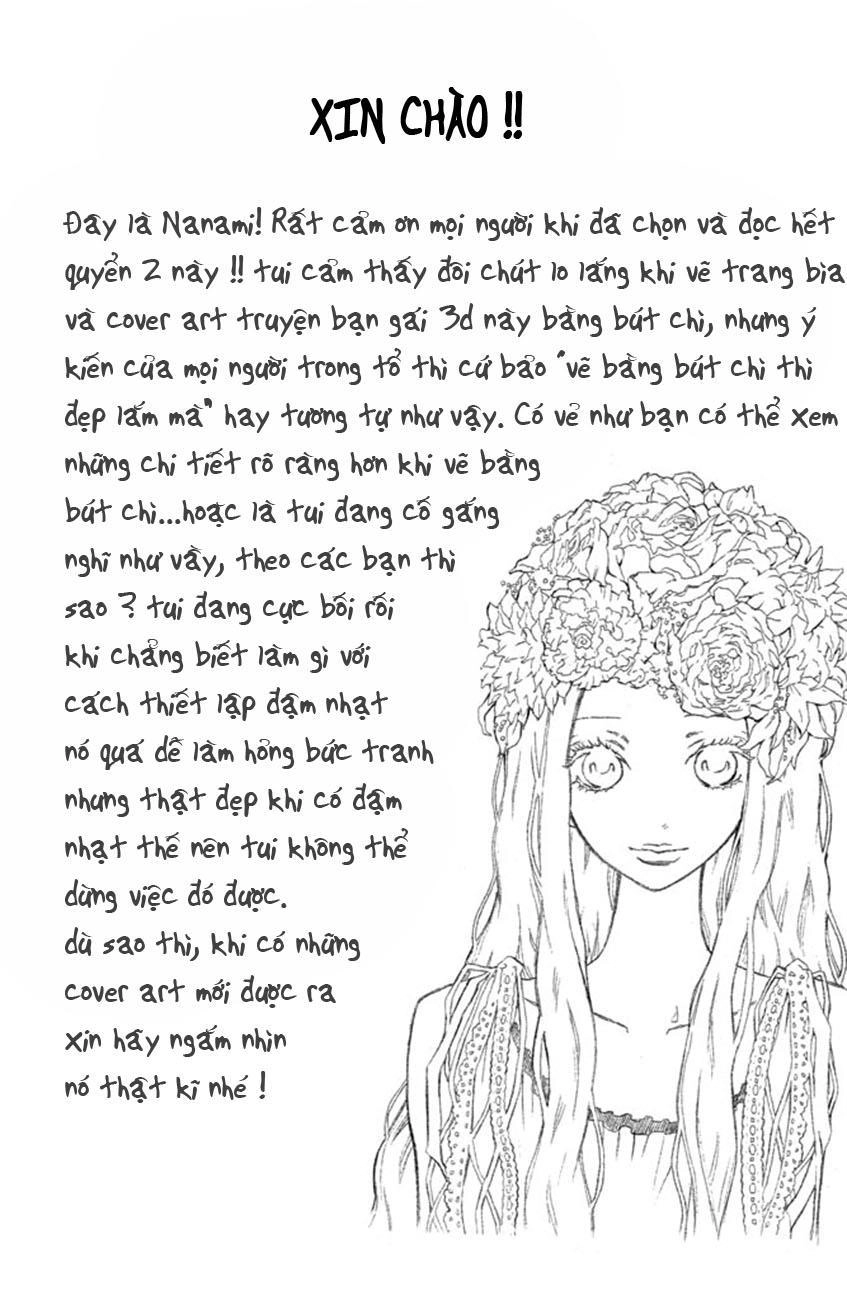 XIN CHÀO !!
Đây là Nanami! Rất cảm ơn mọi người khi đã chọn và đọc hết
quyển 2 này !! tui cảm thấy đôi chút lo lắng khi vẽ trang bìa
và cover art truyện bạn gái 3d này bằng bút chì, nhưng ý
kiến của mọi người trong tổ thì cứ bảo "vẽ bằng bút chì thì
đẹp lắm mà" hay tương tự như vậy. Có vẻ như bạn có thể xem
những chi tiết rõ ràng hơn khi vẽ bằng
bút chì...hoặc là tui đang cố gắng
nghĩ như vầy, theo các bạn thì
sao ? tui đang cực bối rối
khi chẳng biết làm gì với
cách thiết lập đậm nhạt
nó quá dễ làm hỏng bức tranh
nhưng thật đẹp khi có đậm
nhạt thế nên tui không thể
dừng việc đó được.
dù sao thì, khi có những
cover art mới được ra
xin hãy ngắm nhìn
nó thật kĩ nhé !